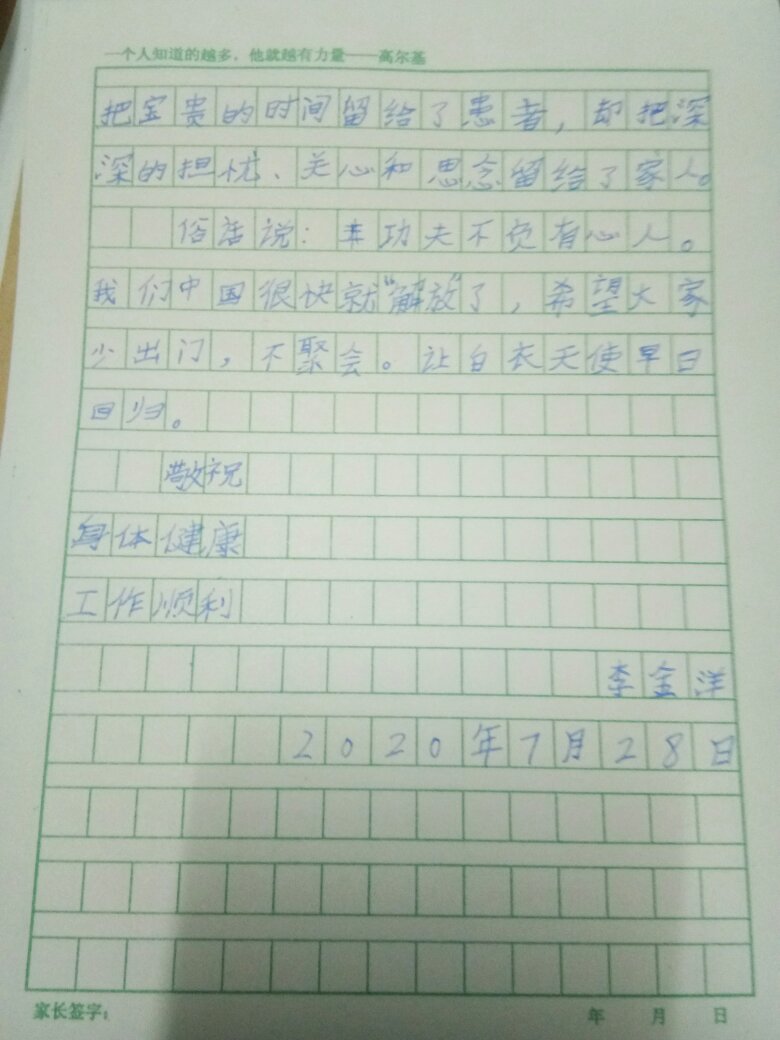 一个人知道的越多，他就越有力量——高尔基
把宝贵的时间留给了患者，却把深
深的担忧、关心和思念留给了家人。
俗话说：功夫不负有心人。
我们中国很快就“解放”了，希望大家
少出门，不聚会。让白衣天使早日
回归。
敬祝
身体健康
工作顺利
李金洋
2020年7月28日
家长签字：
年 月 日